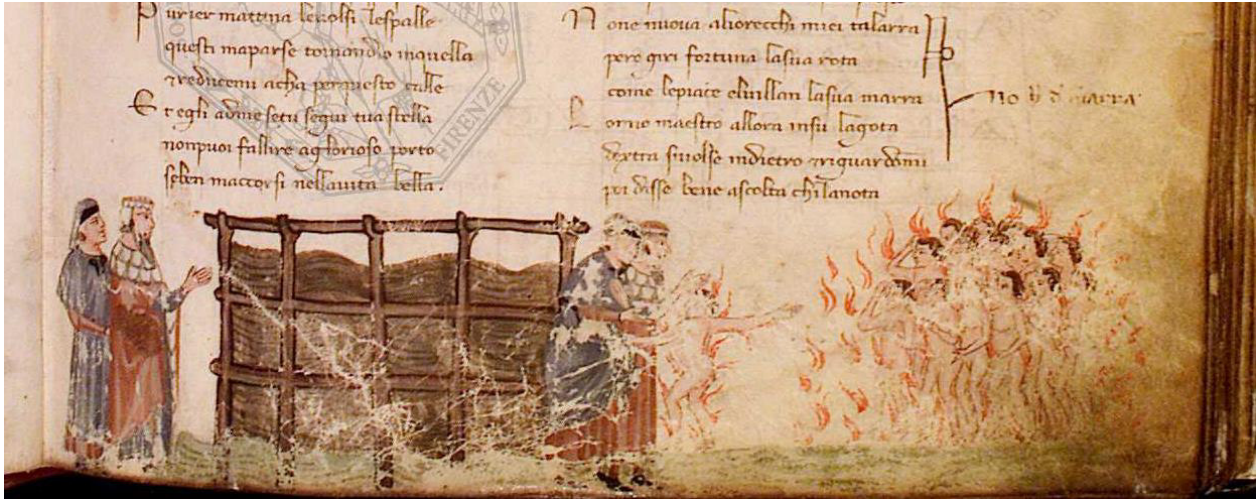 Purier mattina levolsi lespalle
questi maparse tornandio inquella
et reducemi acha per questo calle
Et egli ad me setu segui tua stella
non puoi fallire a glorioso porto
seben maccorsi nellavita bella.
None nuova aliorecchi miei talarra
pero giri fortuna lasua rota
come lepiace elvillan lasua marra
Lomio maestro allora insu lagota
dextra sivolse indietro et riguardomi
poi disse bene ascolta chilanota
FIRENZE